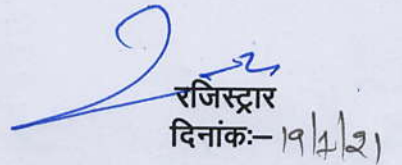 रजिस्ट्रार
दिनांकः– 19/7/21